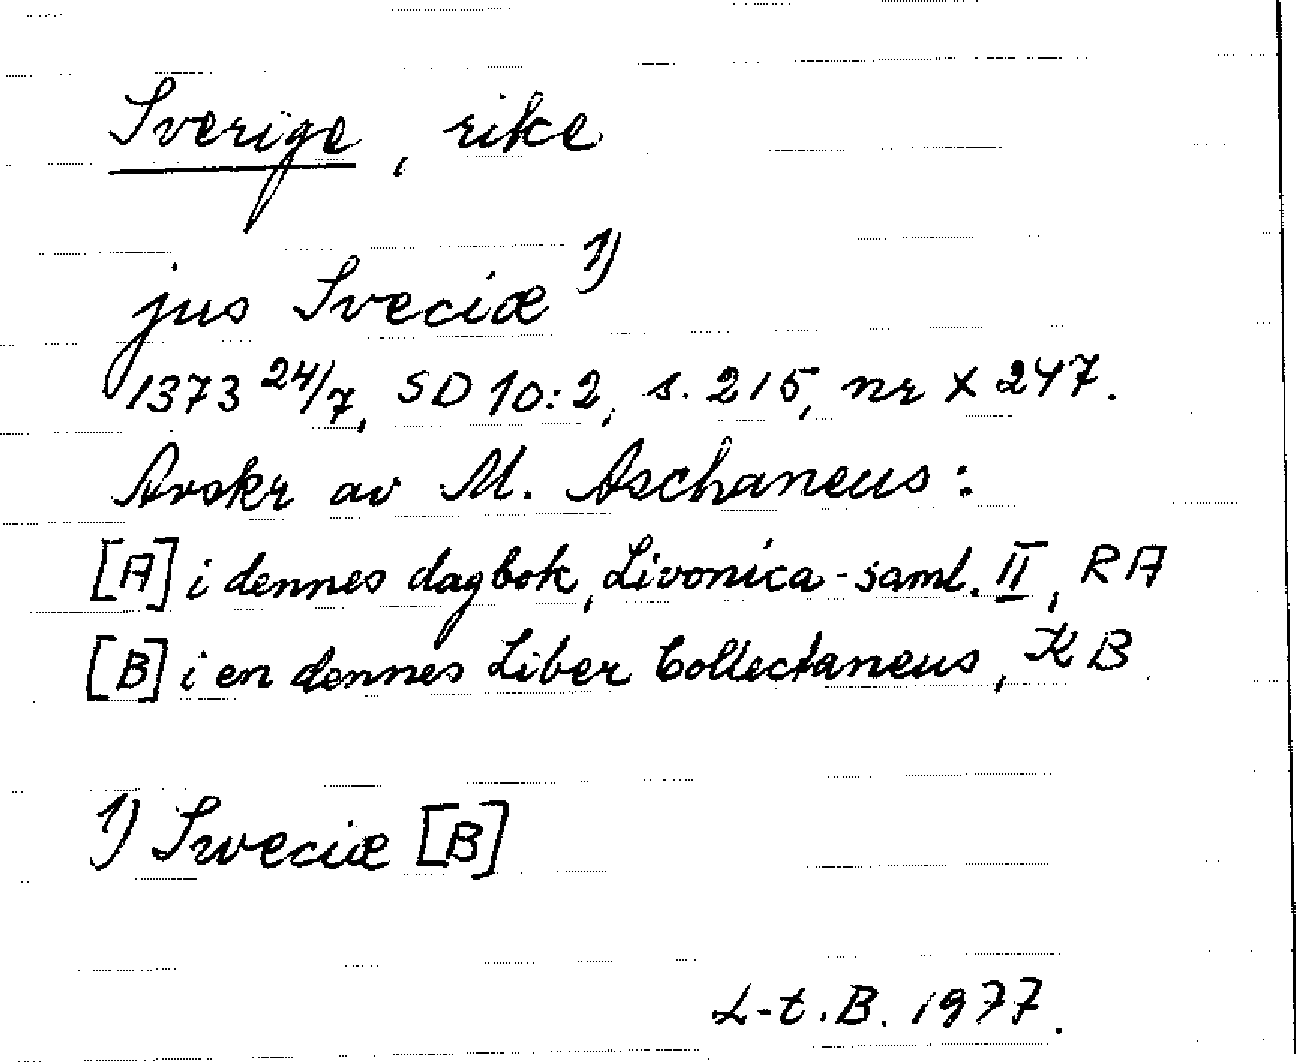 Sverige, rike
jus Sveciæ 1)
1373 24/7, SD 10:2, s. 215, nr X 247.
Avskr av M. Aschaneus:
[A] i dennes dagbok, Livonica-saml. II, RA
[B] i en dennes Liber Collectaneus, KB
1) Sweciæ [B]
L-t. B. 1977.